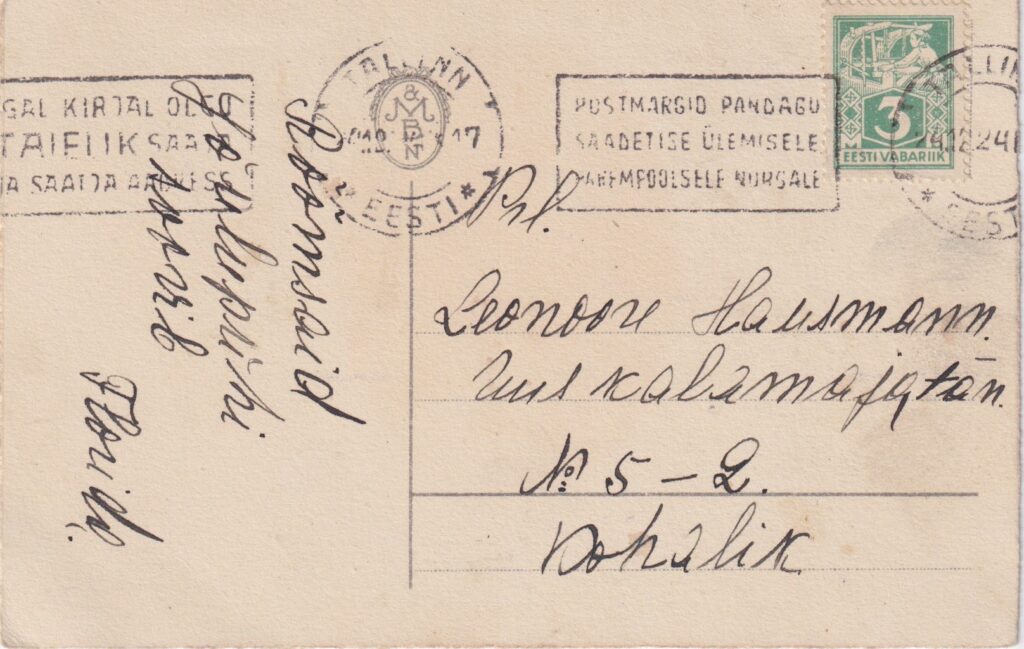 Rõõmsaid
Jõulupühi
soovib
TALLINN
EESTI
17
GAL KIRJAL OLGU
TÄIELIK SAAJA
JA SAATJA AADRESS
POSTMARGID PANDAGU
SAADETISE ÜLEMISELE
PAREMPOOLSELE NURGALE
3
M
EESTI VABARIIK
TALLINN
24.12.24
EESTI
Prl.
Leonoore Hausmann.
Uus kalamaja tän.
№ 5 – 2.
Kohalik